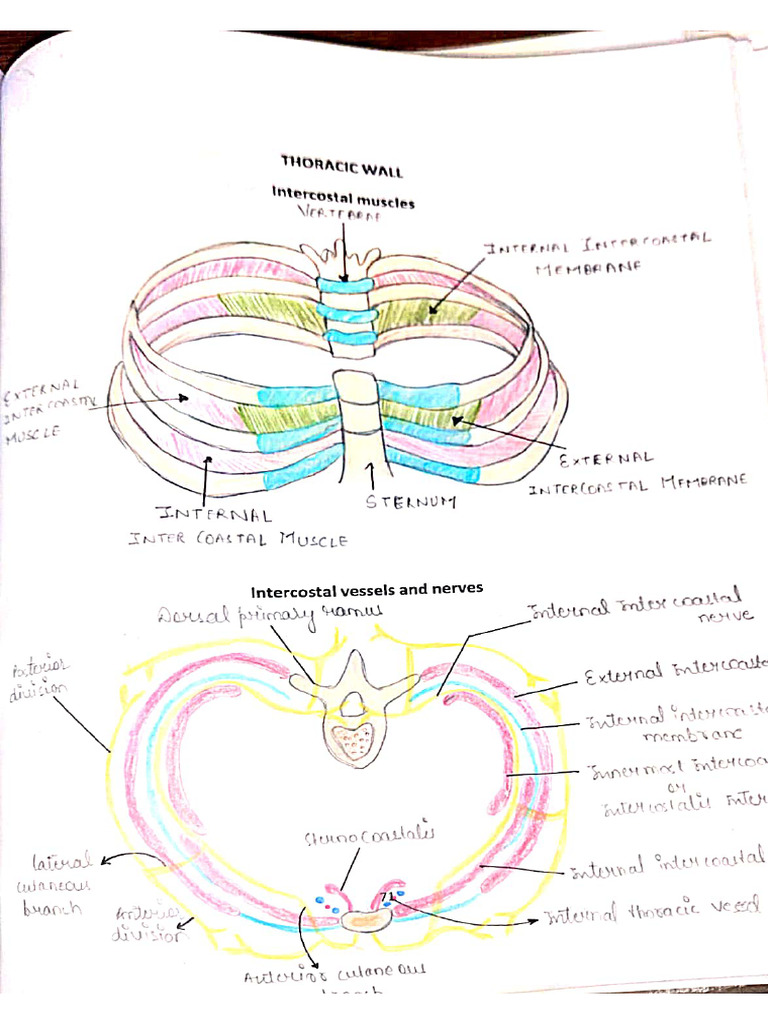 THORACIC WALL
Intercostal muscles
VERTEBRAE
INTERNAL INTERCOASTAL
MEMBRANE
EXTERNAL
INTERCOASTAL
MUSCLE
EXTERNAL
INTERCOASTAL MEMBRANE
STERNUM
INTERNAL
INTER COASTAL MUSCLE
Intercostal vessels and nerves
Dorsal primary ramus
Internal inter coastal
nerve
Posterior
division
External intercoasta
Internal intercoasta
membrane
Innermost intercoa
or
Intercostalis inter
Sternocoastalis
lateral
cutaneous
branch
Internal intercoastal
71
Anterior
division
Internal thoracic vessel
Anterior cutaneous
branch